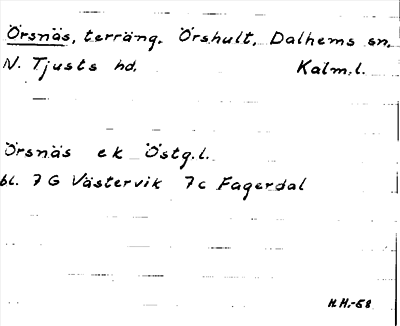 Örsnäs, terräng. Örshult, Dalhems sn.
N. Tjusts hd. Kalm.l.
Örsnäs ek Östg.l.
bl. 7 G Västervik 7c Fagerdal
H.H.-68